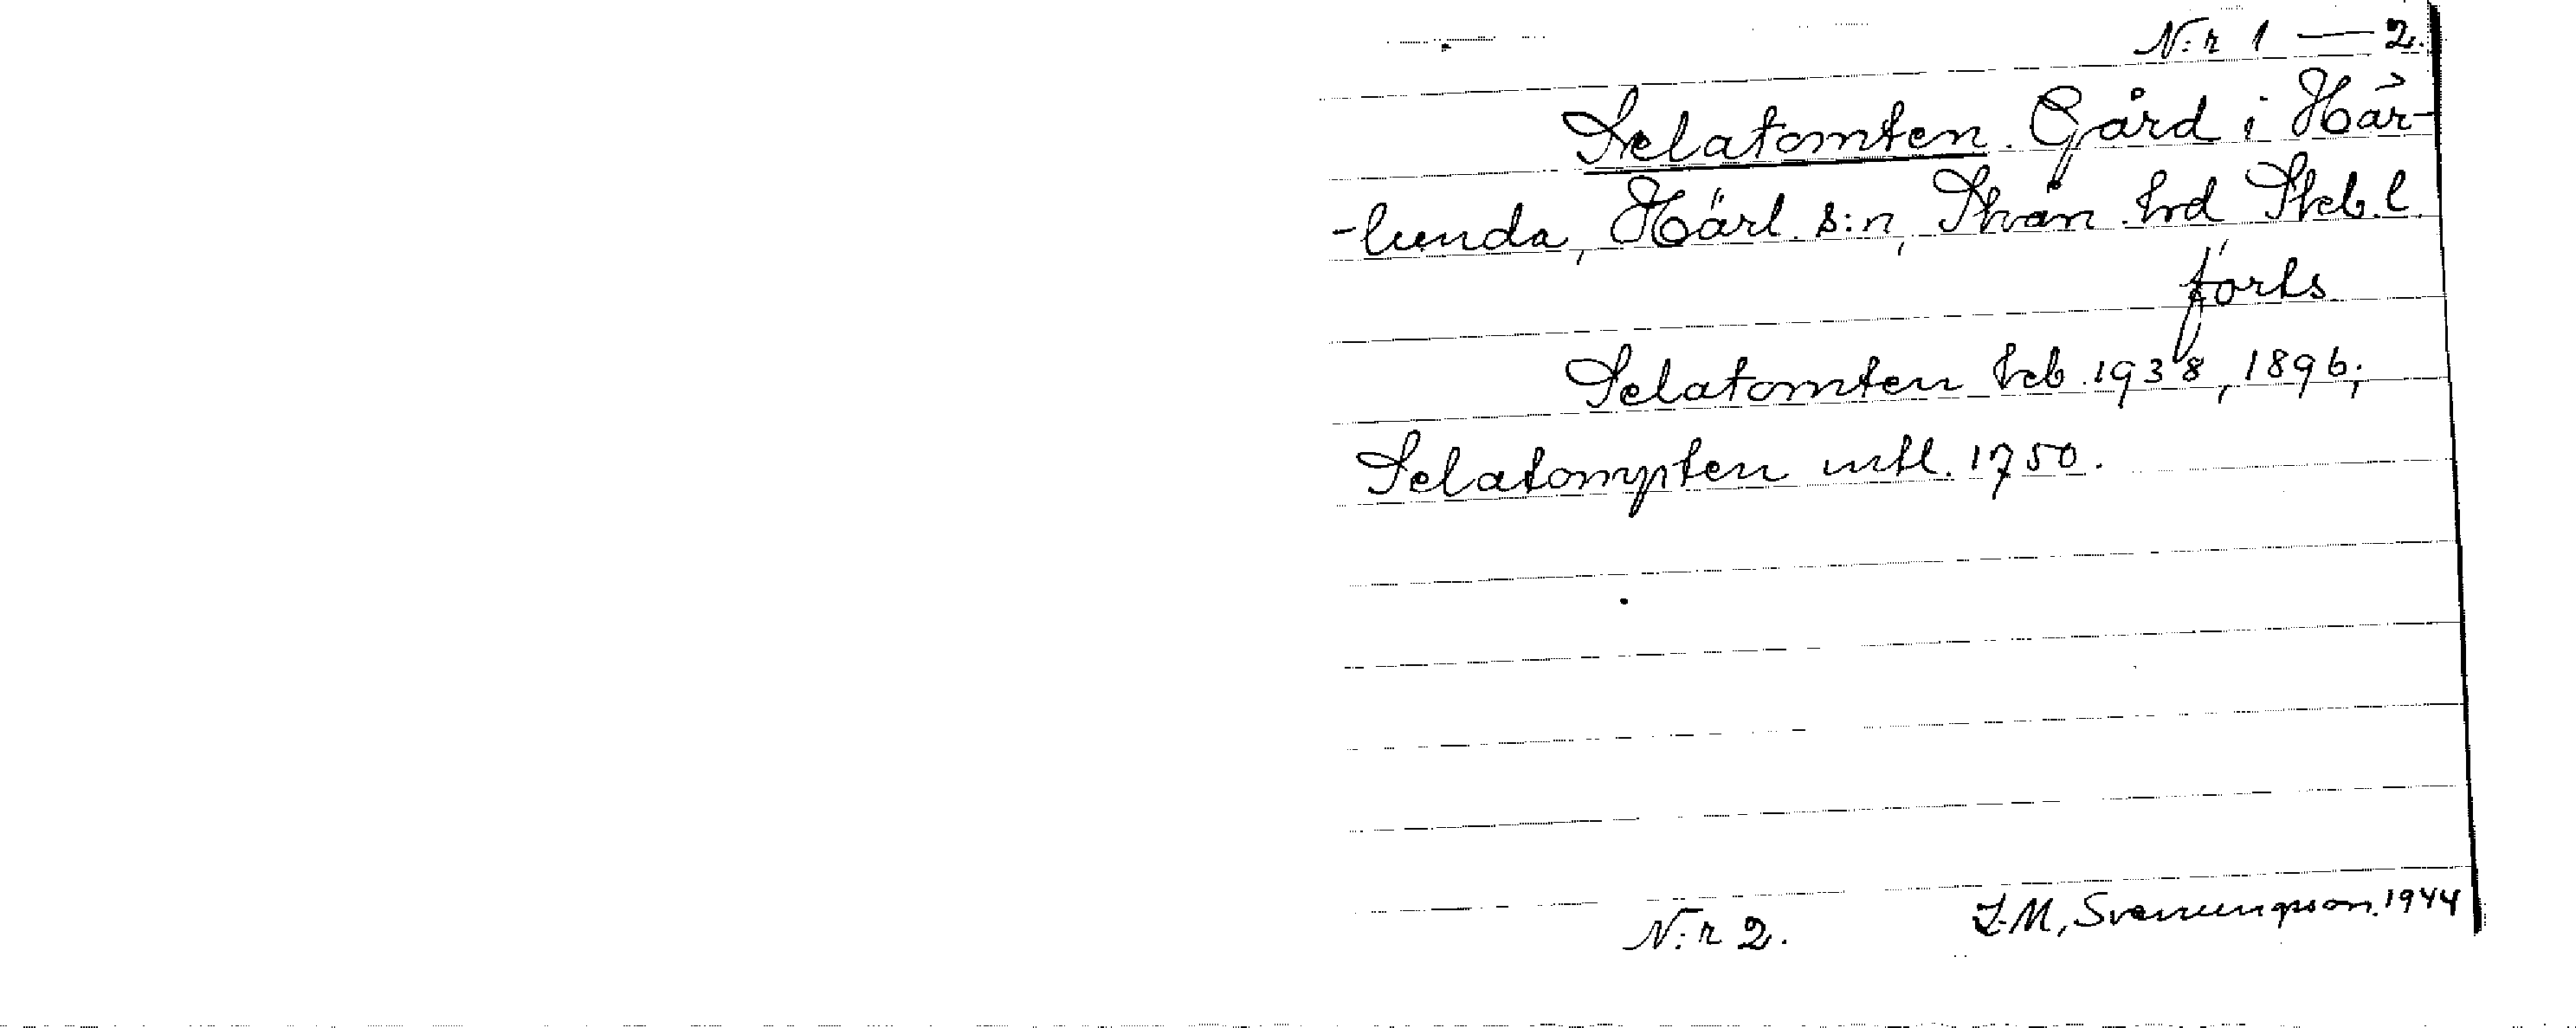 N:r 1 — 2.
Selatomten. Gård i Här-
-lunda, Härl. s:n, Skån. hrd Skb. l.
forts
Selatomten kb. 1938, 1896;
Selatompten mtl. 1750.
N:r 2. L.M, Svenungsson. 1944